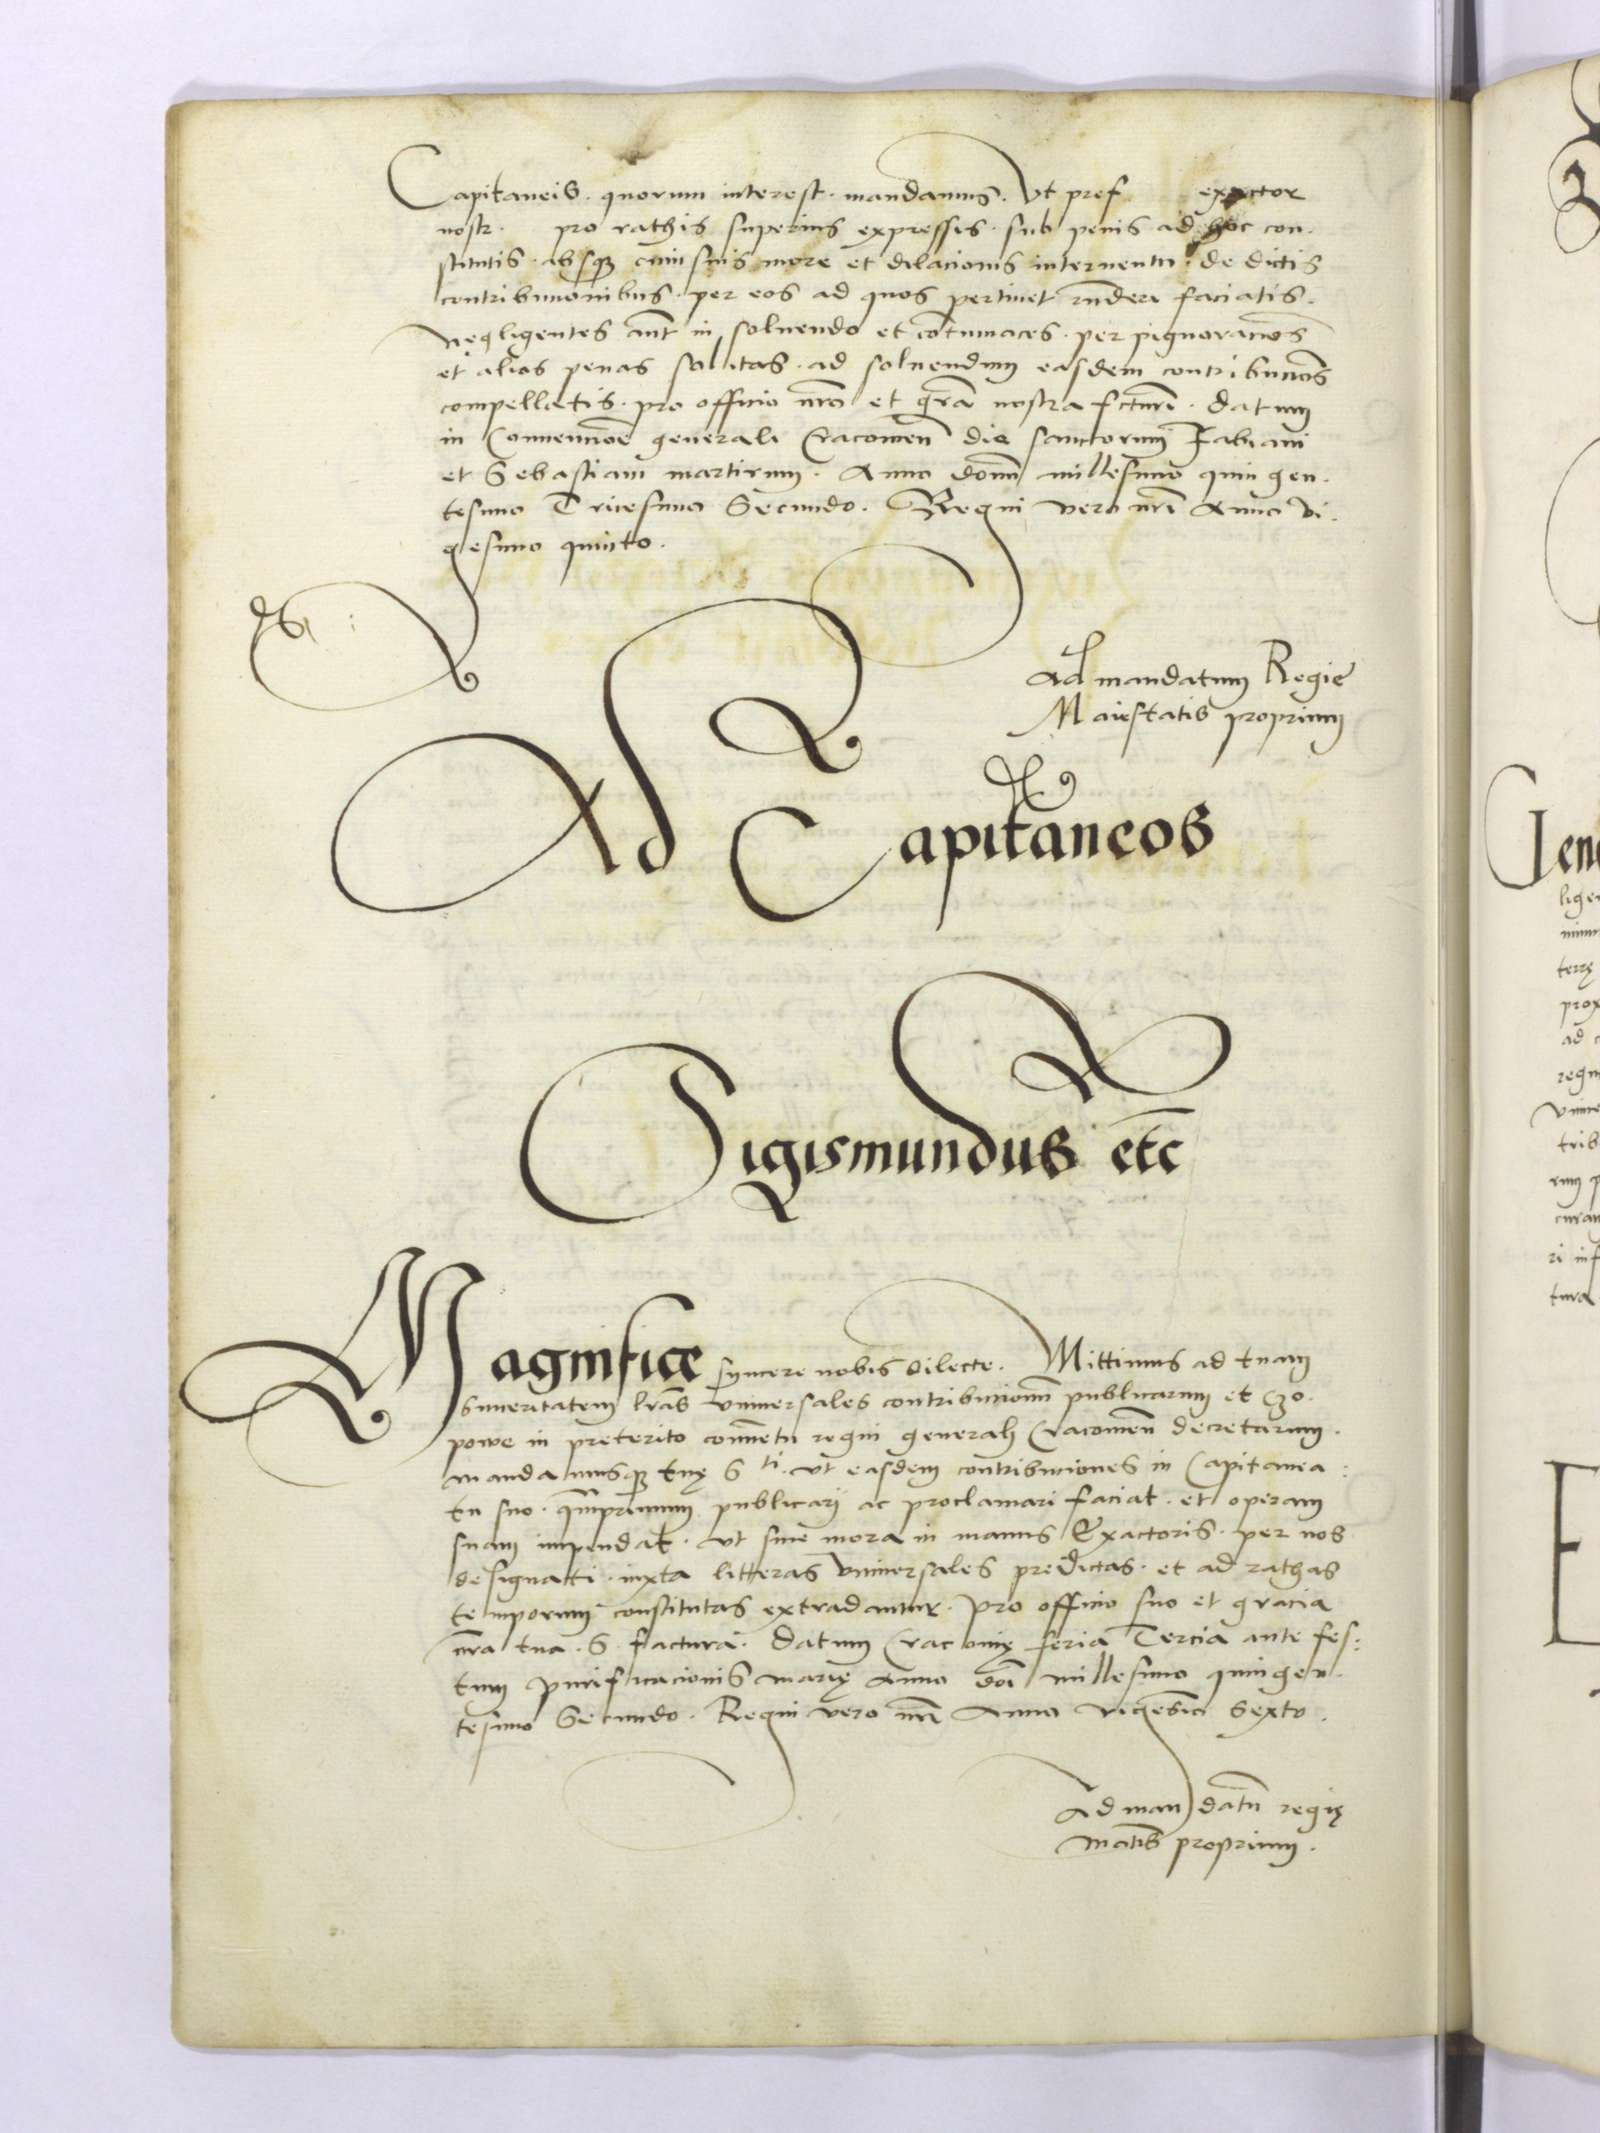 Capitaneis. quorum interest. mandamus. Vt pref exactor
nostr. pro rathis superius expressis. sub penis ad hoc con.
stitutis. absq3 cuiusuis more et dilacionis interuentu. de dictis
contribucionibus. per eos ad quos pertinet rnderi faciatis.
Negligentes aut in soluendo et cotumaces. per pignoracios
et alias penas solitas. ad soluendum easdem contribucios
compellatis. pro officio nro et gra nostra fcturi. Datum
in Conuencioe generali Cracouien die sanctorum Fabiani
et Sebastiani martirum. Anno domi millesimo quingen.
tesimo Tricesimo Secundo. Regni vero nri Anno vi.
gesimo quinto.
Ad mandatum Regie
Maiestatis proprium
Ad Capitaneos
Sigismundus etc
Magnifice syncere nobis dilecte. Mittimus ad tuam
sinceritatem lras vniuersales contribucionum publicarum et Czo.
powe in preterito conuentu regni generali Cracouien decretarum.
mandamusq3 tuę S ti. vt easdem contribuciones in Capitanea:
tu suo. qmprimum publicari ac proclamari faciat. et operam
suam impendat. vt sine mora in manus Exactoris. per nos
designati. iuxta litteras vniuersales predictas. et ad rathas
temporum constitutas extradantur. pro officio suo et gracia
nra tua. S. factura. Datum Cracouię feria Tercia ante fes:
tum purificacionis marię Anno doi millesimo quingen.
tesimo Secundo. Regni vero nri Anno vigesio Sexto.
Ad mandatu regię
Matis proprium.
Gene